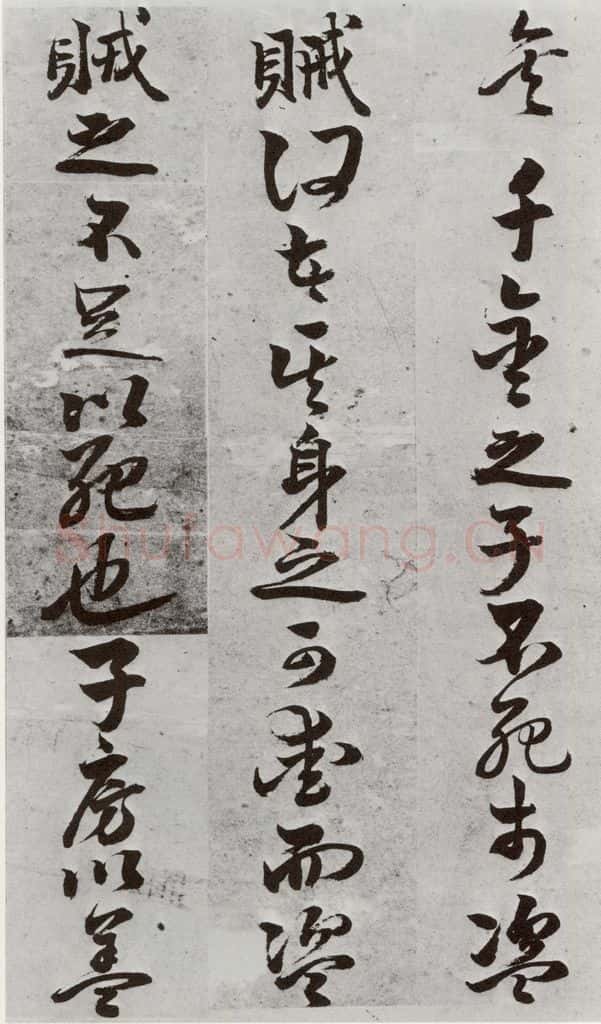 矣千金之子不死於盜
賊何者其身之可愛而盜
賊之不足以死也子房以蓋
shufawang.CN